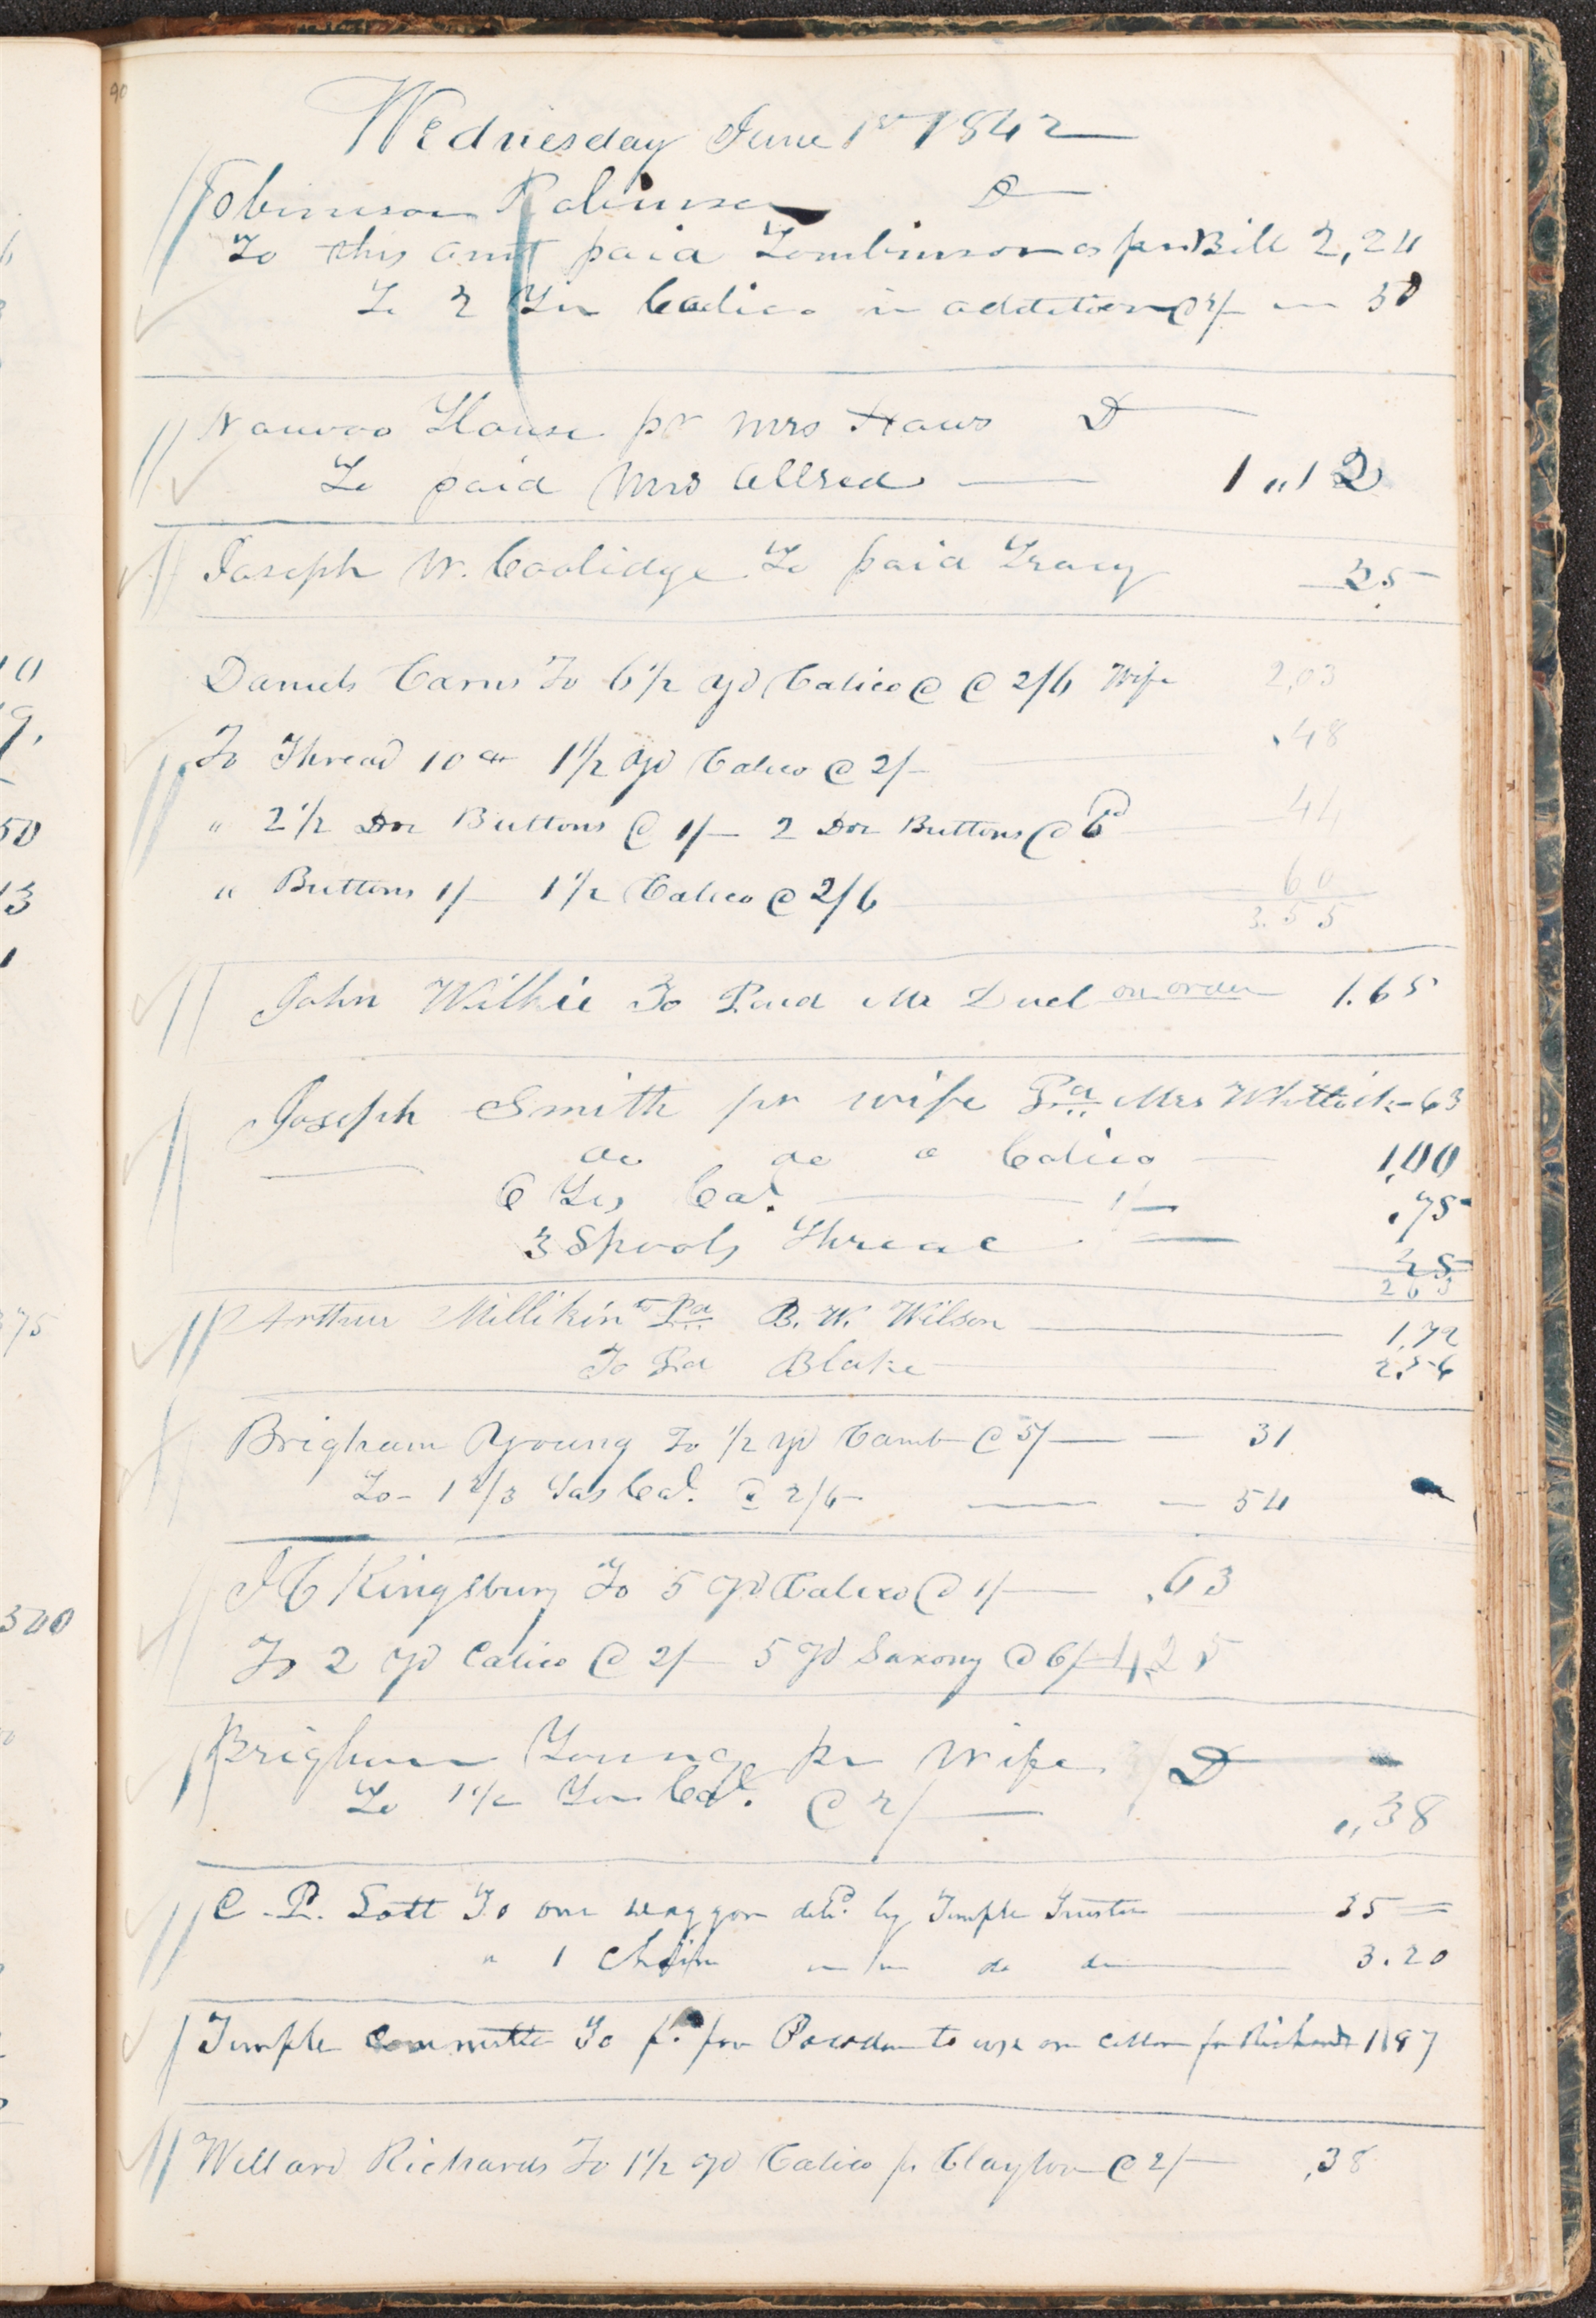 90
Wednesday June 1st 1842
Robinson D
To this amt paid Tomlinson as per Bill 2,24
To 2 Yds Calico in addition @ 2/ 50
Nauvoo House pr Mrs Haws D
To paid Mrs Allred 1,,12
Joseph W. Coolidge To paid Tracy 25
Daniels Carns To 6 1/2 yd Calico @ @ 2/6 Wife 2,03
To Thread 10 cts 1 1/2 yd Calico @ 2/- .48
" 2 1/2 Doz Buttons @ 1/- 2 Doz Buttons @ 6d 44
" Buttons 1/- 1 1/2 Calico @ 2/6 60
3.55
John Wilkie To Paid Mr Duel on order 1.65
Joseph Smith pr wife Pd Mrs Whitlock 63
do do Calico 1,00
6 Yds Cal. 1/- .75
3 Spools Thread 25
2 63
Arthur Millikin to Pd B. W. Wilson 1,72
To Pd Blake 2.56
Brigham Young To 1/2 yd Camb @ 5/- 31
To 1 2/3 Yds Cal. @ 2/6 54
J C Kingsbury To 5 yd Calico @ 1/- .63
To 2 yd Calico @ 2/- 5 yd Saxony @ 6/- 4.25
Brigham Young pr Wife D
To 1 1/2 Yds Cal. @ 2/- ,,38
C. P. Lott To one waggon deld. by Temple Trustee 35=
" 1 Chain " " do do 3.20
Temple Committee To pd. for Powder to use on Cellar for Richards 1 97
Willard Richards To 1 1/2 yd Calico pr Clayton @ 2/- ,38
10
9.
50
13
1
375
300